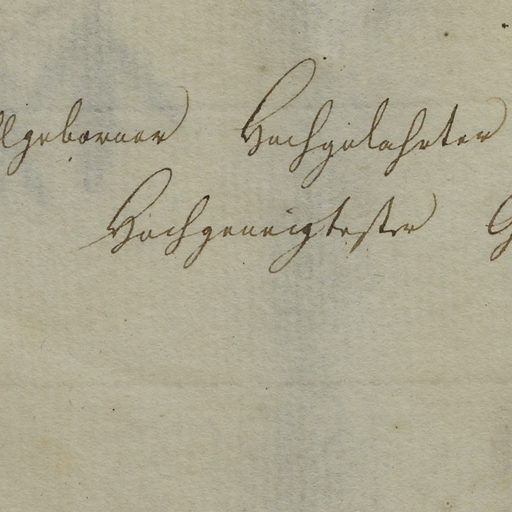 llgeborner Hochgelahrter
Hochgeneigtester G